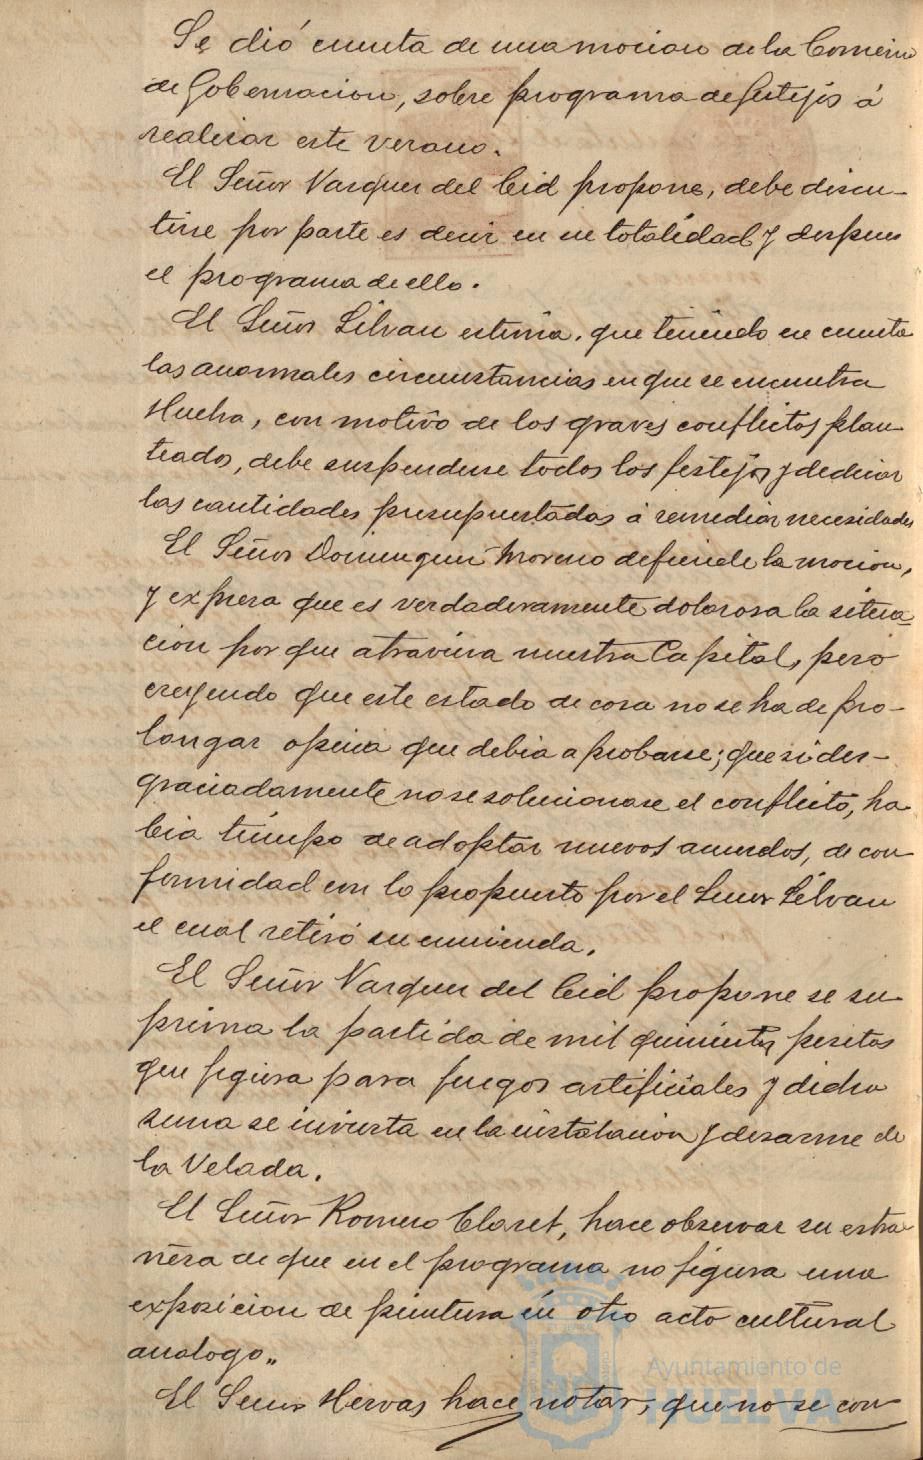 Se dió cuenta de una mocion de la Comision
de Gobernacion, sobre programa de festejos á
realizar este verano.
El Señor Vazquez del Cid propone, debe discu-
tirse por parte es decir en su totalidad y despues
el programa de ello.
El Señor Silvan estima, que teniendo en cuenta
las anormales circunstancias en que se encuentra
Huelva, con motivo de los graves conflictos plan-
teados, debe suspenderse todos los festejos y dedicar
las cantidades presupuestadas á remediar necesidades
El Señor Dominguez Moreno defiende la mocion,
y expresa que es verdaderamente dolorosa la situa-
cion por que atraviesa nuestra Capital, pero
creyendo que este estado de cosa no se ha de pro-
longar opina que debia aprobarse; que si des-
graciadamente no se solucionase el conflicto, ha
bia tiempo de adoptar nuevos acuerdos, de con-
formidad con lo propuesto por el Señor Silvan
el cual retiró su enmienda.
El Señor Vazquez del Cid propone se su-
prima la partida de mil quinientas pesetas
que figura para fuegos artificiales y dicha
suma se invierta en la instalacion y desarme de
la Velada.
El Señor Romero Claret, hace observar su extra-
ñeza de que en el programa no figura una
exposicion de pintura ú otro acto cultural
analogo.
El Señor Hervas hace notar, que no se con
Ayuntamiento de
HUELVA